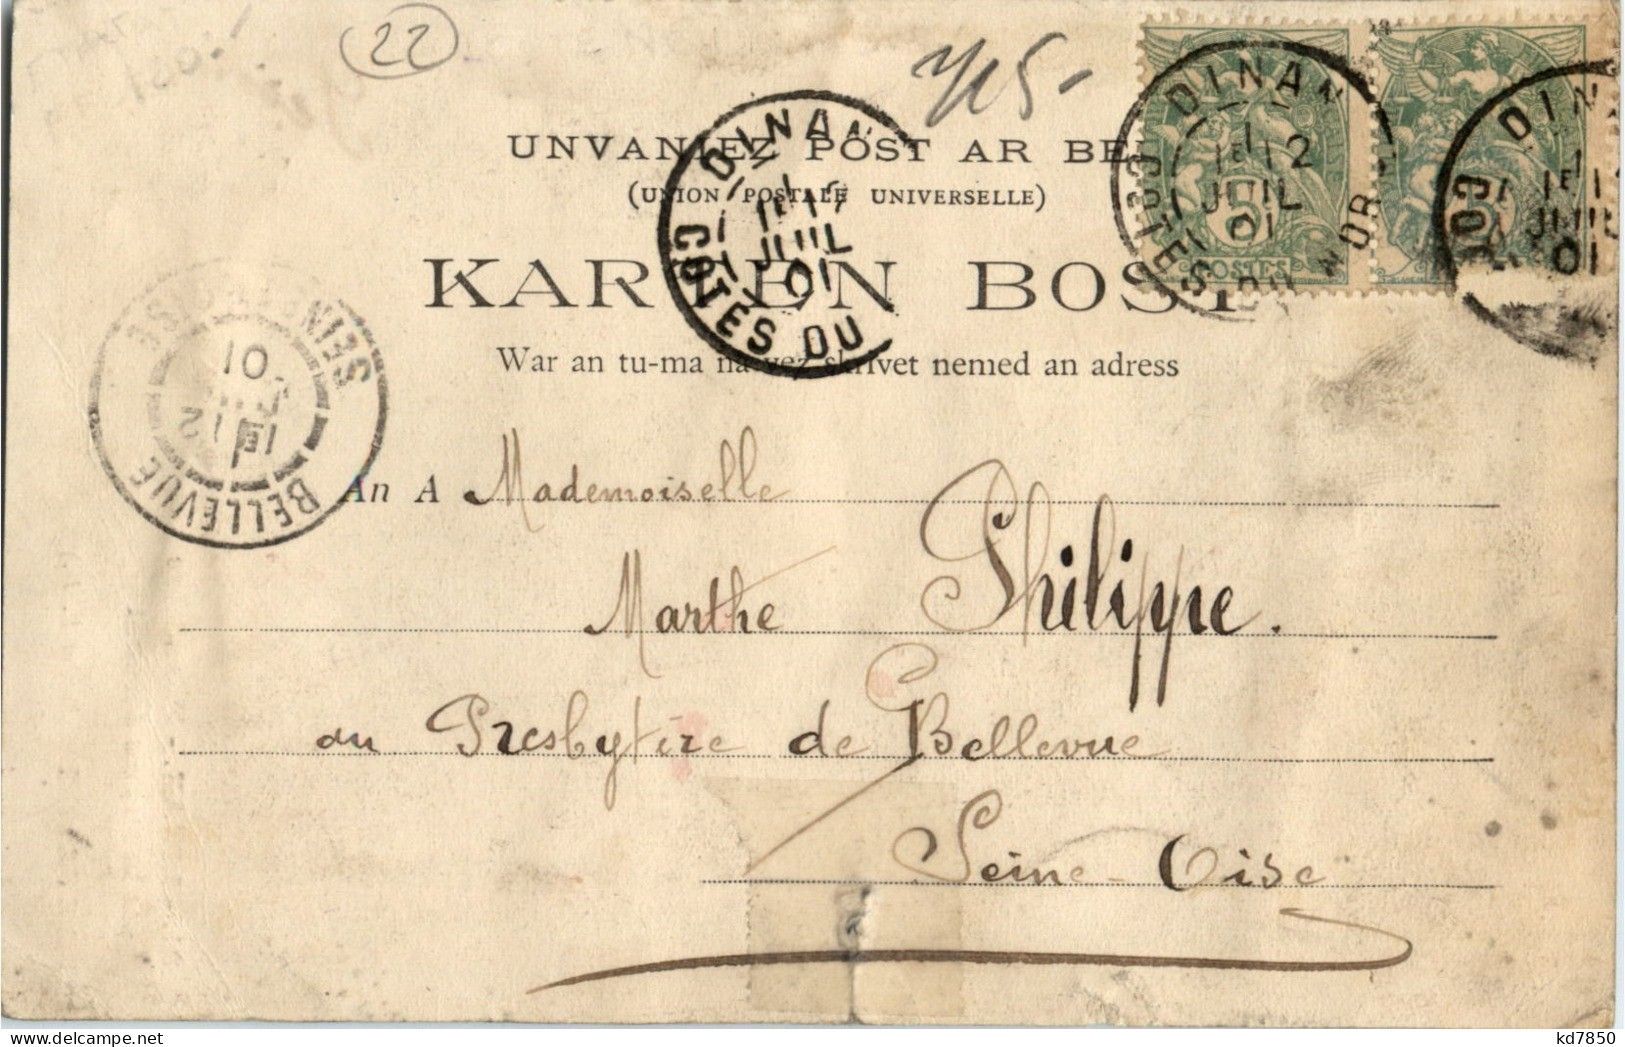 22
7/15-
UNVANIEZ POST AR BE
(UNION POSTALE UNIVERSELLE)
KARTEN BOST
War an tu-ma na vez skrivet nemed an adress
DINAN
1E 12
JUIL
01
COTES DU
DINAN
1E 12
JUIL
01
COTES DU NORD
5
POSTES
DIN
1E 1
JUIL
01
COT
SEINE
01
BELLEVUE
An A Mademoiselle
Marthe Philippe.
au Presbytère de Bellevue
Seine-Oise
kd7850